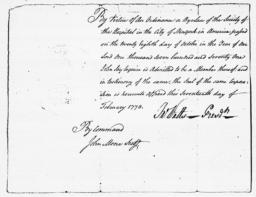 By Virtue of the Ordinance or Byelaw of the Society of
the Hospital in the City of Newyork in America passed
on the twenty eighth day of October in the Year of our
Lord One thousand seven hundred and seventy One
John Jay Esquire is Admitted to be a Member thereof and
in testimony of the same, the Seal of the same Corpo=
ration is hereunto affixed this Seventeenth day of
February 1773.
Jno Watts Presidt
By Command
John Moore Secy